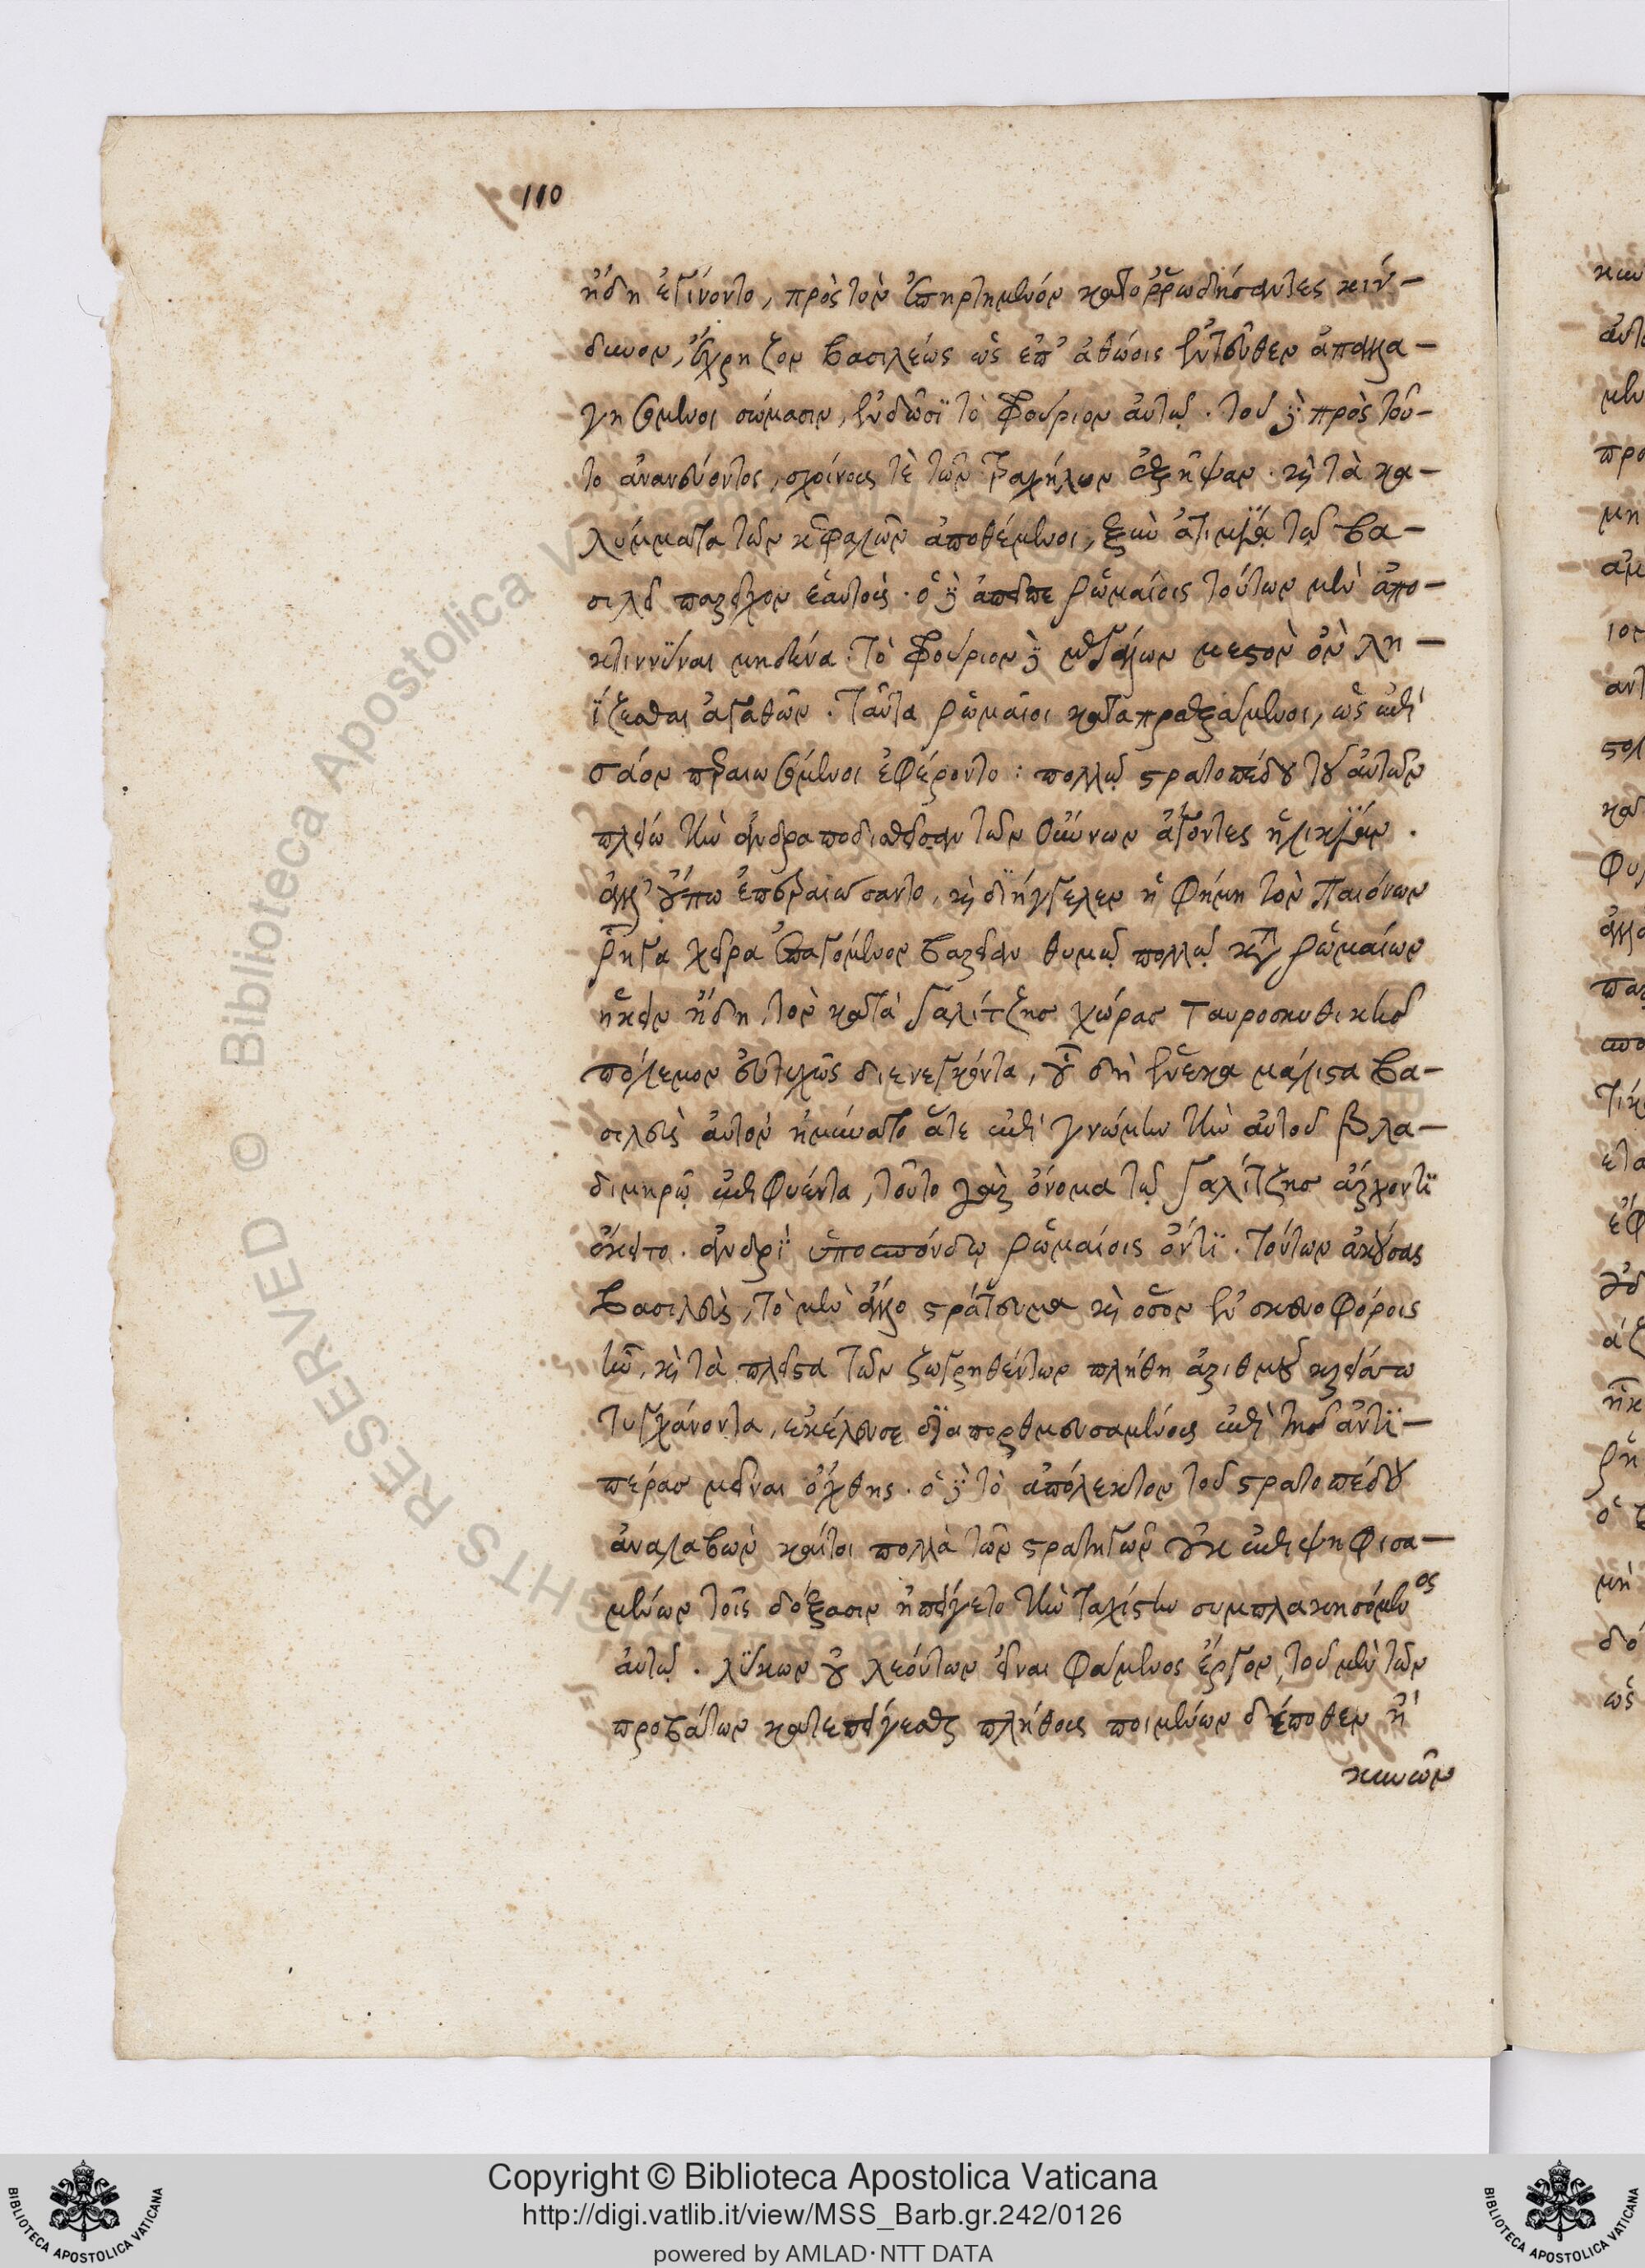 110
ἤδη ἐγίνοντο, πρὸς τὸν ἐπηρτημένον κατορρωδήσαντες κίν-
δυνον, ἔχρηζον βασιλέως ὡς ἐπ' ἀθώοις ἐντεῦθεν ἀπαλλα-
γησόμενοι σώμασιν, ἐνδῶσι τὸ φρούριον αὐτῷ. τοῦ δὲ πρὸς τοῦ-
το ἀνανεύοντος, σχοίνους τὲ τῶν τραχήλων ἐξῆψαν. καὶ τὰ κα-
λύμματα τῶν κεφαλῶν ἀποθέμενοι, ξὺν ἀτιμίᾳ τῷ βα-
σιλεῖ παρεῖχον ἑαυτούς. ὁ δὲ ἀπεῖπε ῥωμαίοις τούτων μὲν ἀπο-
κτιννύναι μηδένα. τὸ φρούριον δὲ μεγάλων μεστὸν ὂν λη-
ΐζεσθαι ἀγαθῶν. ταῦτα ῥωμαῖοι καταπραξάμενοι, ὡς ἐπὶ
σάον περαιωσόμενοι ἐφέροντο: πολλῷ στρατοπέδου τοῦ αὐτῶν
πλείω τὴν ἀνδραποδισθεῖσαν τῶν οὔννων ἄγοντες ἡλικίαν.
ἀλλ' οὔπω ἐπεραιώσαντο, καὶ διήγγελεν ἡ φήμη τὸν Παιόνων
ῥῆγα χεῖρα ἐπαγόμενον βαρεῖαν θυμῷ πολλῷ κατὰ ῥωμαίων
ἥκειν ἤδη, τὸν κατὰ Γαλίτζης χώρας Ταυροσκυθικῆς
πόλεμον εὐτυχῶς διενεγκόντα, οὗ δὴ ἕνεκα μάλιστα βα-
σιλεὺς αὐτὸν ἠμύνατο ἅτε ἐπὶ γνώμην τὴν αὐτοῦ βλα-
διμηρῷ ἐπιφυέντα, τοῦτο γὰρ ὄνομα τῷ Γαλίτζης ἄρχοντι
ἔκειτο. ἀνδρὶ ὑποσπόνδῳ ῥωμαίοις ὄντι. τούτων ἀκούσας
βασιλεὺς, τὸ μὲν ἄλλο στράτευμα καὶ ὅσον ἐν σκευοφόροις
ἦν, καὶ τὰ πλεῖστα τῶν ζωγρηθέντων πλήθη ἀριθμοῦ κρείττω
τυγχάνοντα, ἐκέλευσε διαπορθμευσαμένους ἐπὶ τῆς ἀντι-
πέρας μεῖναι ὄχθης. ὁ δὲ τὸ ἀπόλεκτον τοῦ στρατοπέδου
ἀναλαβὼν καίτοι πολλὰ τῶν στρατηγῶν οὐκ ἐπιψηφισα-
μένων τοῖς δόξασιν ἠπείγετο τὴν ταχίστην συμπλακησόμενος
αὐτῷ. λύκων οὐ λεόντων εἶναι φάμενος ἔργον, τοῦ μὲν τῶν
προβάτων κατεπείγεσθαι πλήθους ποιμένων δέ ποθεν ἢ
κυνῶν
Copyright © Biblioteca Apostolica Vaticana
http://digi.vatlib.it/view/MSS_Barb.gr.242/0126
powered by AMLAD·NTT DATA